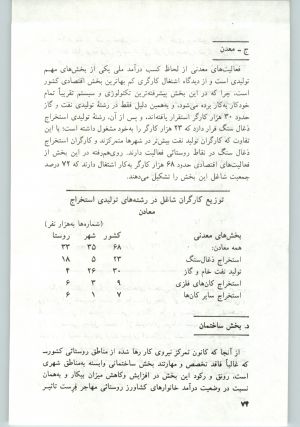 ج ـ معدن
فعالیت‌های معدنی از لحاظ کسب درآمد ملی یکی از بخش‌های مهم
تولیدی است و از دیدگاه اشتغال کارگری کم بهاترین بخش اقتصادی کشور
است، چرا که در این بخش پیشرفته‌ترین تکنولوژی و سیستم تقریباً تمام
خودکار بکار برده می‌شود، و به‌همین دلیل فقط در رشتهٔ تولیدی نفت و گاز
حدود ۳۰ هزار کارگر استقرار یافته‌اند، و پس از آن، رشتهٔ تولیدی استخراج
ذغال سنگ قرار دارد که ۲۳ هزار کارگر را به‌خود مشغول داشته است؛ با این
تفاوت که کارگران تولید نفت بیش‌تر در شهرها متمرکزند و کارگران استخراج
ذغال سنگ در نقاط روستائی فعالیت دارند. روی‌هم‌رفته در این بخش از
فعالیت‌های اقتصادی حدود ۶۸ هزار کارگر به‌کار اشتغال دارند که ۷۲ درصد
جمعیت شاغل این بخش را تشکیل می‌دهند.
توزیع کارگران شاغل در رشته‌های تولیدی استخراج
معادن
(شماره‌ها به‌هزار نفر)
بخش‌های معدنی کشور شهر روستا
همه معادن: ۶۸ ۳۵ ۳۳
استخراج ذغال‌سنگ ۲۳ ۵ ۱۸
تولید نفت خام و گاز ۳۰ ۲۶ ۴
استخراج کان‌های فلزی ۹ ۳ ۶
استخراج سایر کان‌ها ۷ ۱ ۶
د. بخش ساختمان
از آنجا که کانون تمرکز نیروی کار رها شده از مناطق روستائی کشور‌ـ
که غالباً فاقد تخصص و مهارتند بخش ساختمانی وابسته به‌مناطق شهری
است، رونق و رکود این بخش در افزایش کاهش میزان بیکار و به‌همان
نسبت در وضعیت درآمد خانوارهای کشاورز روستائی مهاجر فرست تاثیر
۷۴